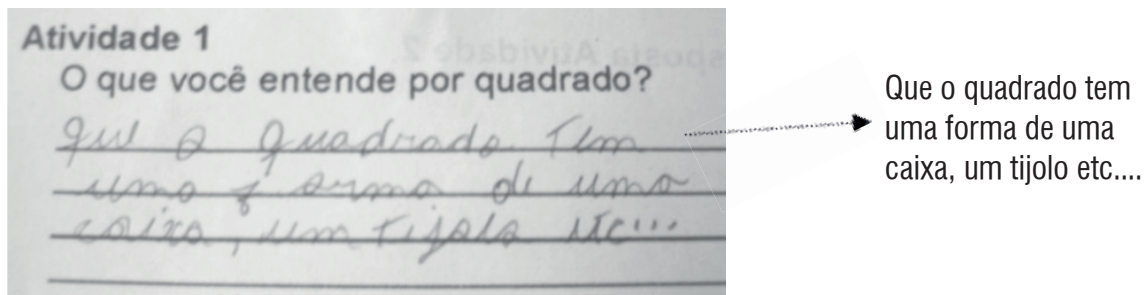 Atividade 1
O que você entende por quadrado?
que o quadrado tem
uma forma de uma
caixa, um tijolo etc...
Que o quadrado tem
uma forma de uma
caixa, um tijolo etc....